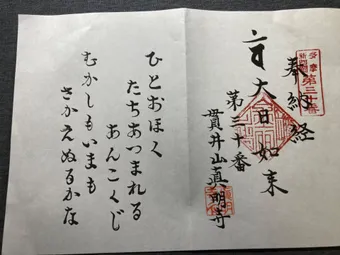 多摩
第三十番
奉納経
大日如来
第三十番
貫井山真明寺
ひとおほく
たちあつまれる
あんこくじ
むかしもいまも
さかえぬるかな